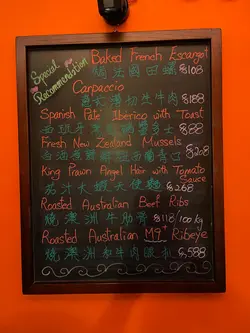 Special
Recommendation
Baked French Escargot
焗法國田螺 $108
Carpaccio
意大利初生牛肉 $188
Spanish Pate Iberico with Toast
$88
Fresh New Zealand Mussels
King Prawn Angel Hair with Tomato Sauce
茄汁大蝦天使麵 $268
Roasted Australian Beef Ribs
燒澳洲牛肋骨 $118/100kg
Roasted Australian M9+ Ribeye
燒澳洲和牛肉眼扒 $588